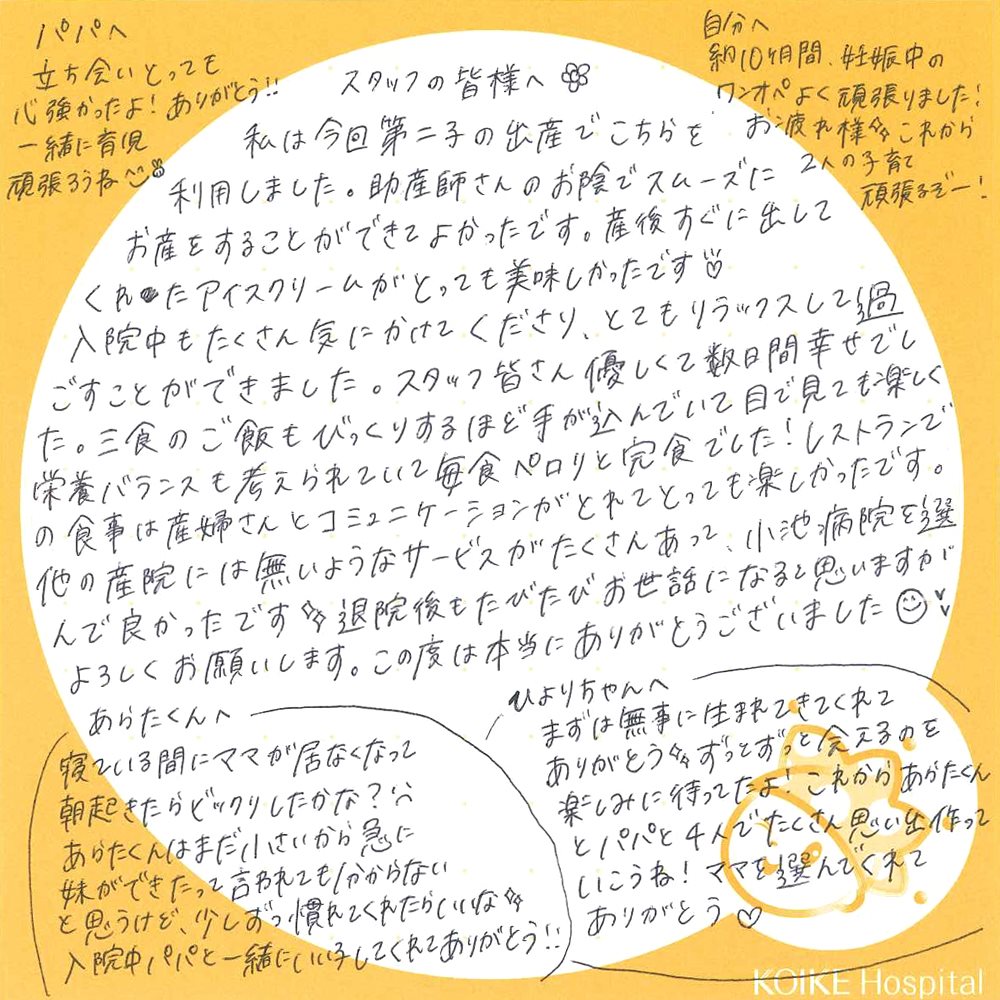 パパへ
立ち会いとっても
心強かったよ!ありがとう!!
一緒に育児
頑張ろうね
自分へ
約10ヶ月間、妊娠中の
ワンオペよく頑張りました!
お疲れ様 これから
2人の子育て
頑張るぞー!
スタッフの皆様へ
私は今回第二子の出産でこちらを
利用しました。助産師さんのお陰でスムーズに
お産をすることができてよかったです。産後すぐに出して
くれたアイスクリームがとっても美味しかったです♡
入院中もたくさん気にかけてくださり、とてもリラックスして過
ごすことができました。スタッフ皆さん優しくて数日間幸せでし
た。三食のご飯もびっくりするほど手が込んでいて目で見ても楽しく
栄養バランスも考えられていて毎食ペロリと完食でした!レストランで
の食事は産婦さんとコミュニケーションがとれてとっても楽しかったです。
他の産院には無いようなサービスがたくさんあって、小池病院を選
んで良かったです 退院後もたびたびお世話になると思いますが
よろしくお願いします。この度は本当にありがとうございました
あらたくんへ
寝ている間にママが居なくなって
朝起きたらビックリしたかな?
あらたくんはまだ小さいから急に
妹ができたって言われても分からない
と思うけど、少しずつ慣れてくれたらいいな
入院中パパと一緒にいい子してくれてありがとう!!
ひよりちゃんへ
まずは無事に生まれてきてくれて
ありがとう ずっとずっと会えるのを
楽しみに待ってたよ!これからあらたくん
とパパと4人でたくさん思い出作って
いこうね!ママを選んでくれて
ありがとう♡
KOIKE Hospital